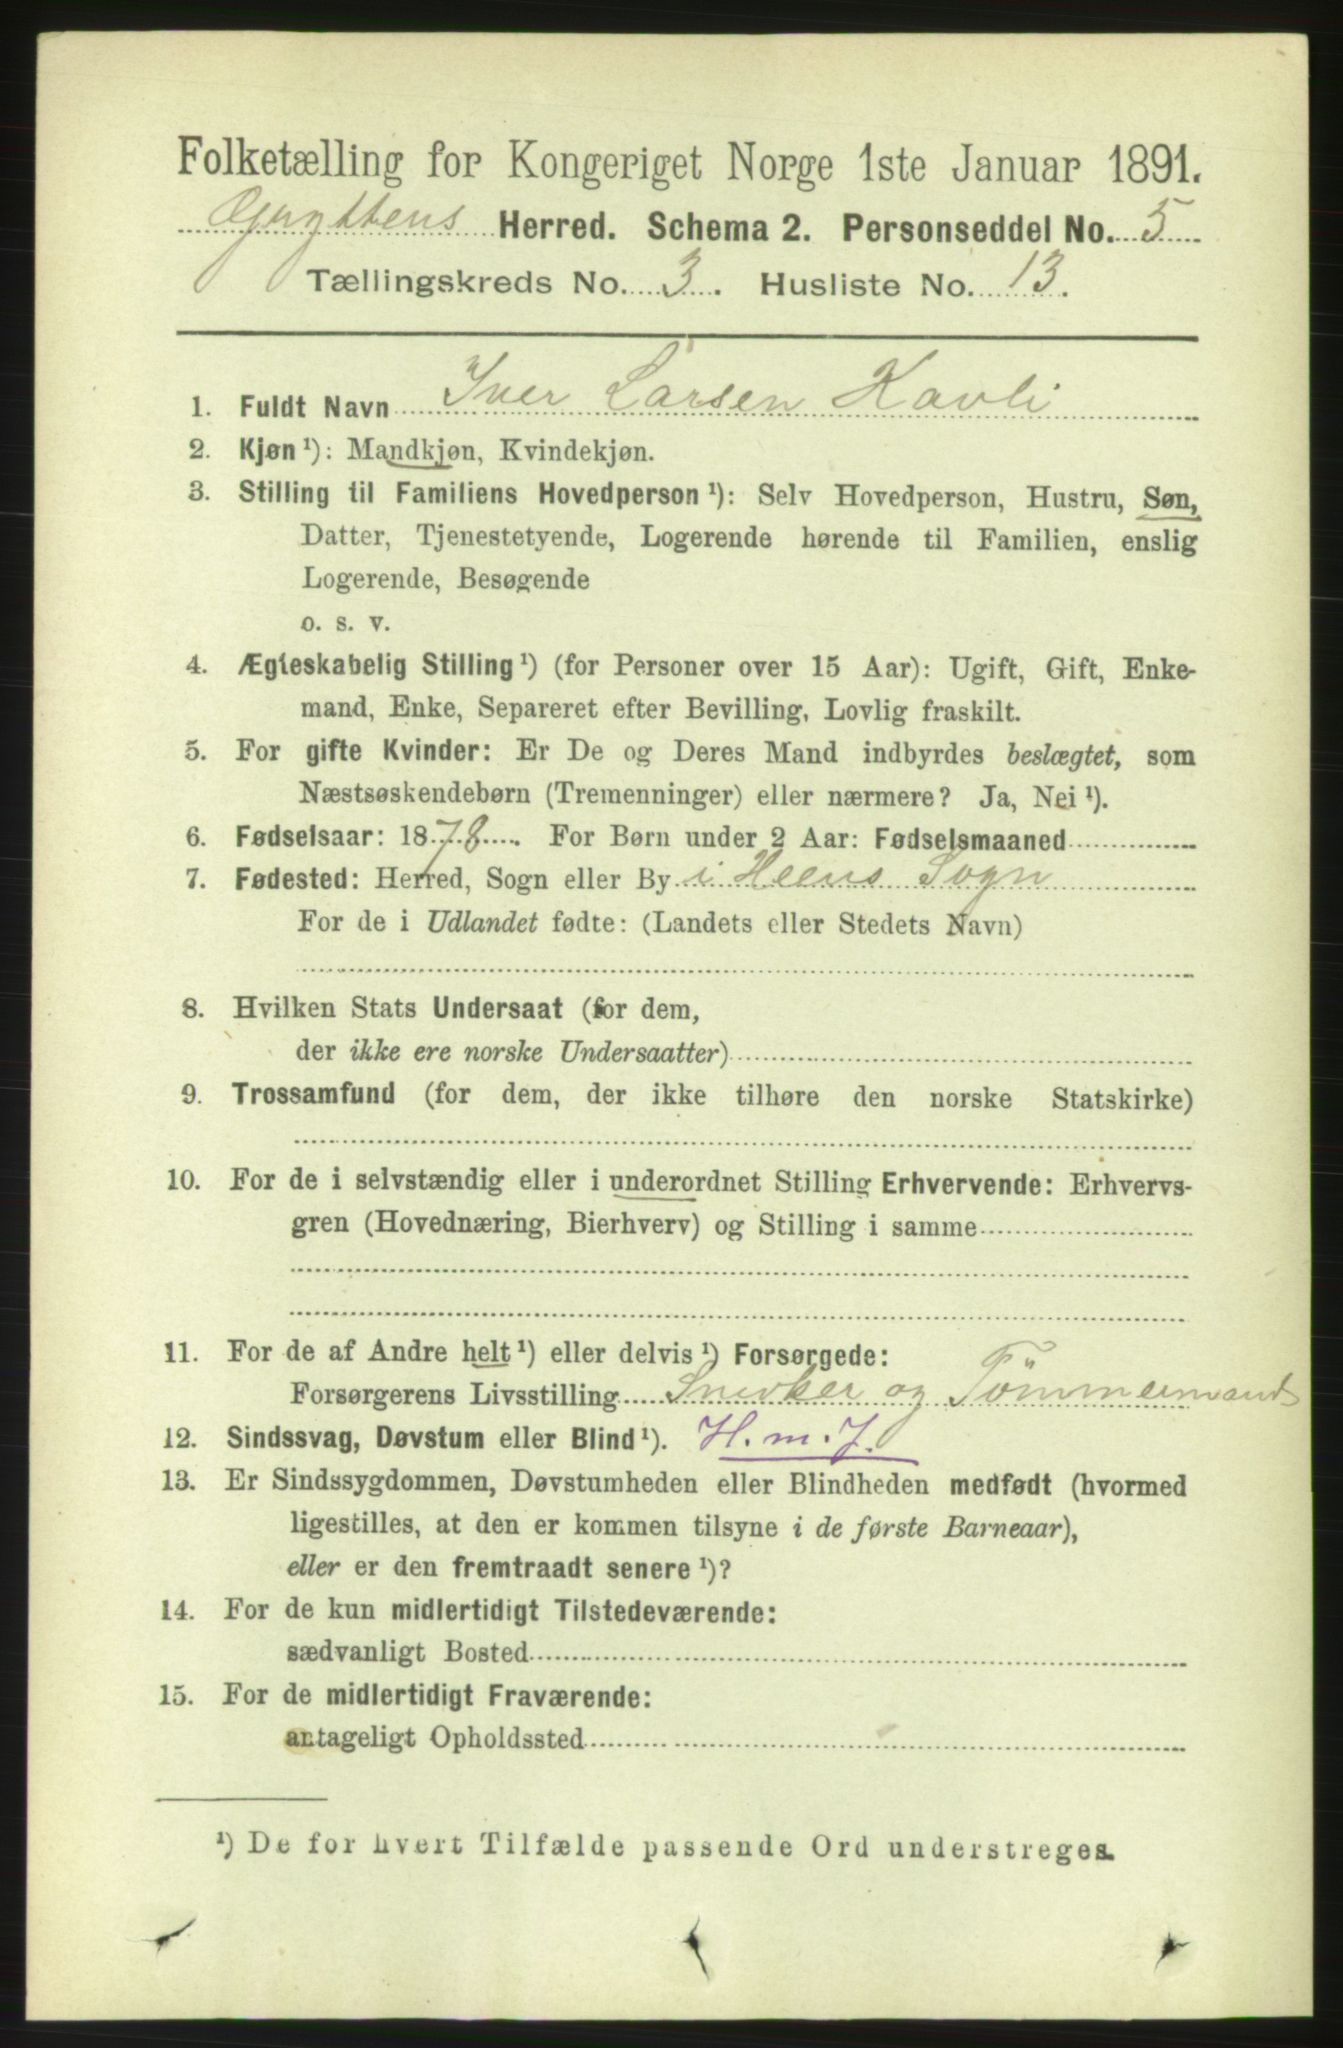 Folketælling for Kongeriget Norge 1ste Januar 1891.
Gryttens Herred. Schema 2. Personseddel No. 5
Tællingskreds No. 3. Husliste No. 13.
1. Fuldt Navn Iver Larsen Kavli
2. Kjøn ¹): Mandkjøn, Kvindekjøn.
3. Stilling til Familiens Hovedperson ¹): Selv Hovedperson, Hustru, Søn,
Datter, Tjenestetyende, Logerende hørende til Familien, enslig
Logerende, Besøgende
o. s. v.
4. Ægteskabelig Stilling ¹) (for Personer over 15 Aar): Ugift, Gift, Enke-
mand, Enke, Separeret efter Bevilling, Lovlig fraskilt.
5. For gifte Kvinder: Er De og Deres Mand indbyrdes beslægtet, som
Næstsøskendebørn (Tremenninger) eller nærmere? Ja, Nei ¹).
6. Fødselsaar: 1878. For Børn under 2 Aar: Fødselsmaaned
7. Fødested: Herred, Sogn eller By i Heens Sogn
For de i Udlandet fødte: (Landets eller Stedets Navn)
8. Hvilken Stats Undersaat (for dem,
der ikke ere norske Undersaatter)
9. Trossamfund (for dem, der ikke tilhøre den norske Statskirke)
10. For de i selvstændig eller i underordnet Stilling Erhvervende: Erhvervs-
gren (Hovednæring, Bierhverv) og Stilling i samme
11. For de af Andre helt ¹) eller delvis ¹) Forsørgede:
Forsørgerens Livsstilling Snedker og Tömmermand
12. Sindssvag, Døvstum eller Blind ¹). H. m. J.
13. Er Sindssygdommen, Døvstumheden eller Blindheden medfødt (hvormed
ligestilles, at den er kommen tilsyne i de første Barneaar),
eller er den fremtraadt senere ¹)?
14. For de kun midlertidigt Tilstedeværende:
sædvanligt Bosted
15. For de midlertidigt Fraværende:
antageligt Opholdssted
¹) De for hvert Tilfælde passende Ord understreges.